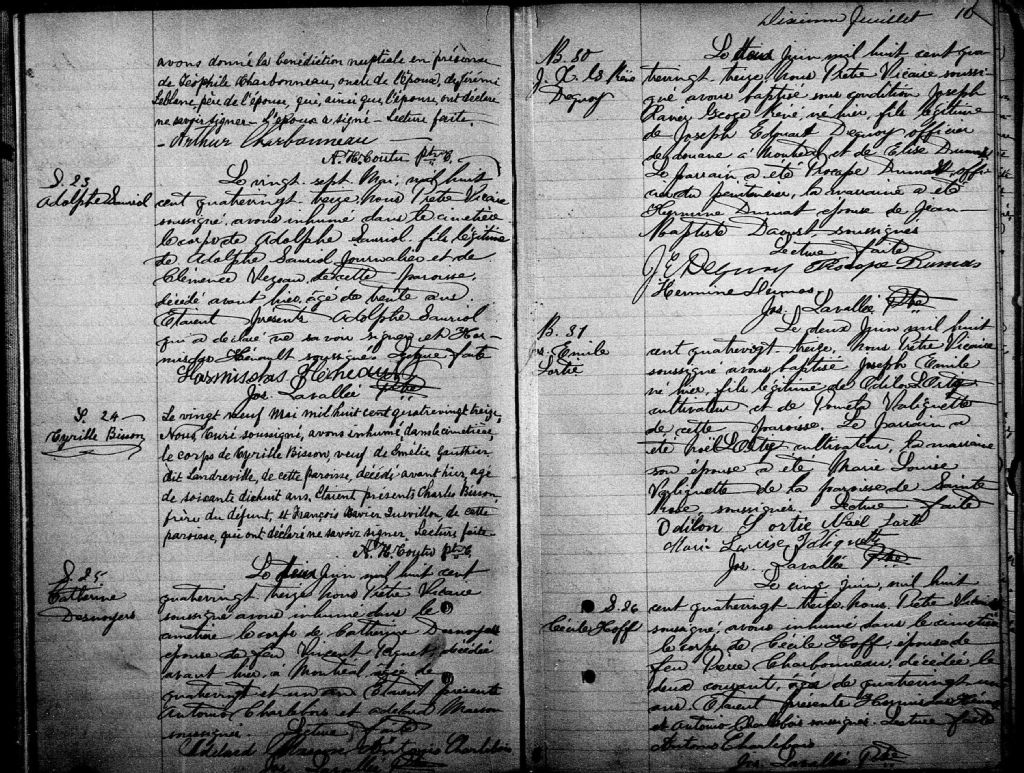 avons donné la bénédiction nuptiale en présence
de Téophile Charbonneau, oncle de l'époux, de
Leblanc, père de l'épouse, qui, ainsi que l'épouse ont déclaré
ne savoir signer. L'époux a signé. Lecture faite.
Arthur Charbonneau
A. H. Coutu ptre C.
S. 23
Adolphe Sauriol
Le vingt-sept Mai, mil huit
cent quatrevingt treize, nous Prêtre Vicaire
soussigné, avons inhumé dans le cimetière
le corps de Adolphe Sauriol, fils légitime
de Adolphe Sauriol Journalier et de
Clémence Vezeau de cette paroisse,
décédé avant hier, agé de trente ans
Etaient présents Adolphe Sauriol
qui a déclaré ne savoir signer et Hor-
misdas Hénault soussigné Lecture faite
Hormisdas Heneault
Jos. Lavallée Ptre
S. 24
Cyrille Bisson
Le vingt neuf Mai mil huit cent quatrevingt treize,
Nous Curé soussigné, avons inhumé dans le cimetière,
le corps de Cyrille Bisson, veuf de Emélie Gauthier
dit Landreville, de cette paroisse, décédé avant hier agé
de soixante dixhuit ans. Etaient présents Charles Bisson,
frère du défunt, et François Xavier Quevillon, de cette
paroisse, qui ont déclaré ne savoir signer. Lecture faite.
A. H. Coutu ptre C.
S. 25
Catherine
Desnoyers
Le deux Juin mil huit cent
quatrevingt treize nous Prêtre Vicaire
soussigné avons inhumé dans le
cimetière le corps de Catherine Desnoyers
épouse de feu Vincent décédée
avant hier, à Montréal agée de
quatrevingt et un an Etaient présents
Antonio Charlebois et Masson
soussignés. Lecture faite
Masson Antonio Charlebois
Jos. Lavallée Ptre
Dixième Juillet 10
B. 30
J. X. G. René
Deguoy
Le deux Juin mil huit cent qua
trevingt treize, nous Prêtre Vicaire soussi-
gné avons baptisé sous condition Joseph
Xavier George René, né hier, fils légitime
de Joseph Edouard Deguoy officier
de douane à Montréal et de Elise Dumas
Le parrain a été Procope Dumas offi-
cier du pénitencier, la marraine a été
Hermine Dumas épouse de Jean-
Baptiste Daoust soussignés
Lecture faite
J E Deguoy Procope Dumas
Hermine Dumas
Jos. Lavallée Ptre
B. 31
Jos. Emile
Lortie
Le deux Juin mil huit
cent quatrevingt treize, nous Prêtre Vicaire
soussigné avons baptisé Joseph Emile
né hier, fils légitime de Odilon Lortie
cultivateur et de Valiquette
de cette paroisse. Le parrain a
été Noël Lortie, cultivateur, la marraine
son épouse a été Marie Louise
Valiquette de la paroisse de Sainte
Rose, soussignés. Lecture faite
Odilon Lortie Noël Lortie
Marie Louise Valiquette
Jos. Lavallée Ptre
S. 26
Cécile Hoff
Le cinq Juin, mil huit
cent quatrevingt treize, nous, Prêtre Vicaire
soussigné, avons inhumé dans le cimetière
le corps de Cécile Hoff, épouse de
feu Pierre Charbonneau, décédée le
deux courant, agée de quatrevingt
ans. Etaient présents Hormisdas
et Antonio Charlebois soussignés. Lecture faite
Antonio Charlebois
Jos. Lavallée Ptre